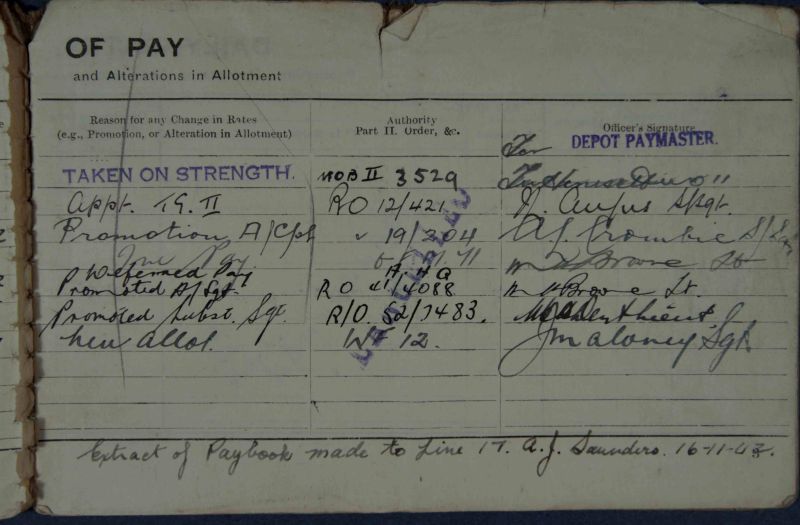 OF PAY
and Alterations in Allotment
Reason for any Change in Rates
(e.g., Promotion, or Alteration in Allotment)
Authority
Part II. Order, &c.
Officer's Signature
For
DEPOT PAYMASTER.
TAKEN ON STRENGTH. MOB II 3529
Appt. TG. II RO 12/421 Angus S/Sgt.
Promotion A/Cpl " 19/204 A. J. Crombie S/
Deferred Pay Browne Lt
AHQ
Promoted A/Sgt. RO 41/4088 Browne Lt.
Promoted Subst. Sgt. R/O. 52/7483.
New allot. WF 12. J Maloney Sgt.
Extract of Paybook made to Line 17. A.J. Saunders. 16-11-43.